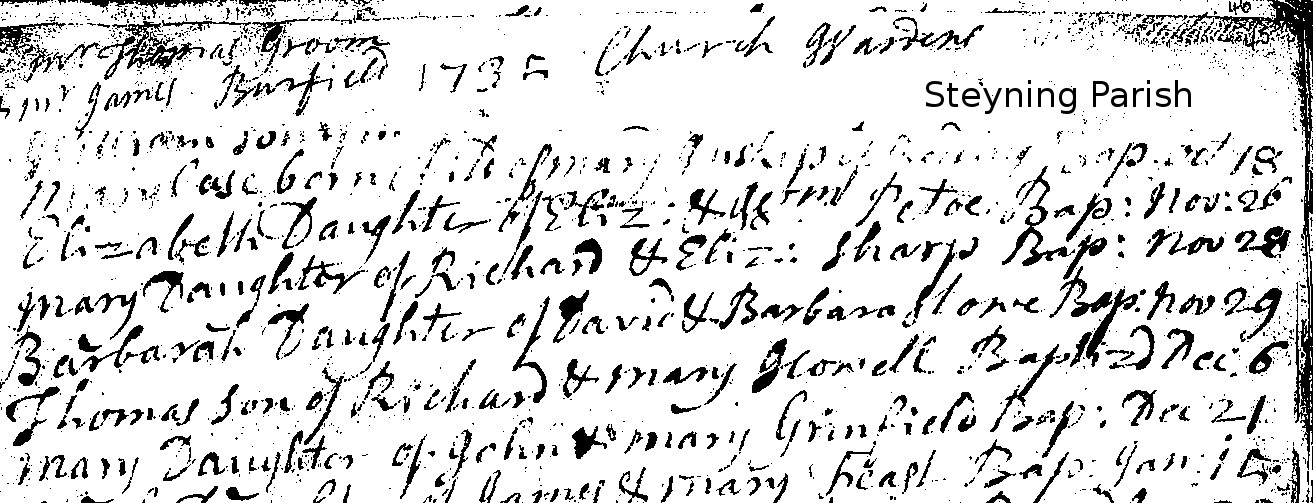 46
Mr Thomas Groom
Mr James Burfield 1735 Church Wardens
Steyning Parish
son
Mary base born of mary Bap: oct 18
Elizabeth Daughter of Eliz: & Petoe Bap: Nov: 26
mary Daughter of Richard & Eliz: Sharp Bap: Nov 28
Barbarah Daughter of David & Barbara Slowe Bap: Nov 29
Thomas Son of Richard & mary Baptizd Dec: 6
mary Daughter of John & mary Grinfield Bap: Dec 21
James & mary Feast Bap: Jan: 15